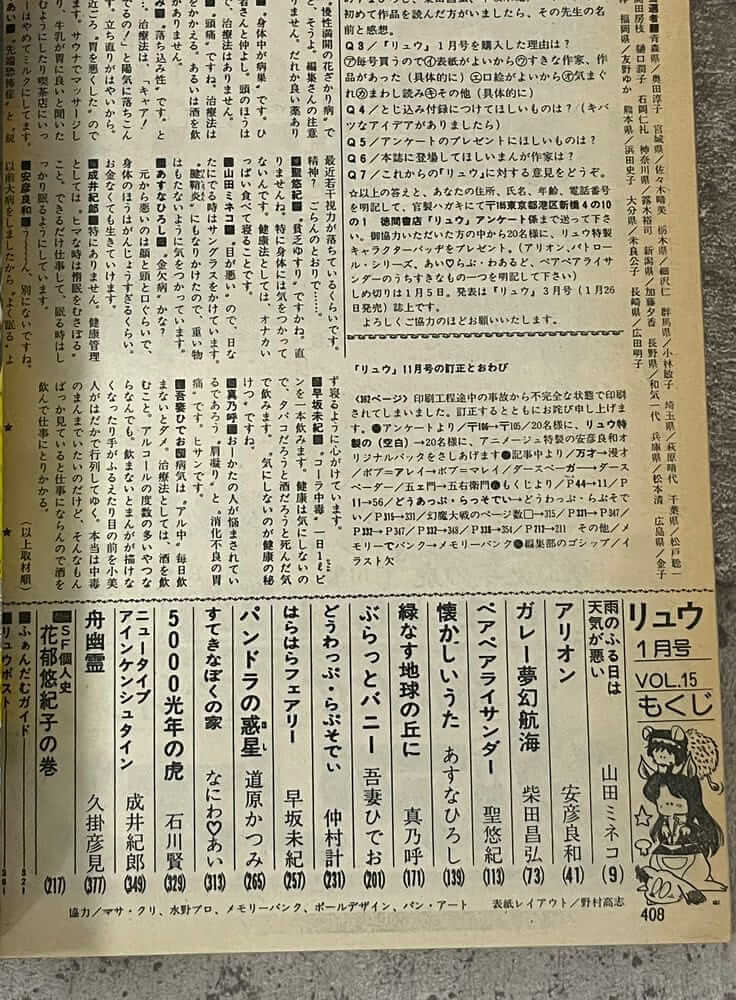 高田房枝 福岡県／友野ゆか 熊本県／浜田史子 大分県／末良公子 長崎県／広田明子
樋口潤子 石岡仁礼 神奈川県／露木裕司 新潟県／加藤夕香 長野県／和気一代 兵庫県／松本清 広島県／金子
青森県／奥田淳子 宮城県／佐々木晴美 栃木県／細沢仁 群馬県／小林敏子 埼玉県／萩原晴代 千葉県／松戸聡一
初めて作品を読んだ方がいましたら、その先生の名
前と感想。
Q3／『リュウ』1月号を購入した理由は？
㋐毎号買うので㋑表紙がよいから㋒すきな作家、作
品があった（具体的に）㋓口絵がよいから㋔気まぐ
れ㋕まわし読み㋖その他（具体的に）
Q4／とじ込み付録につけてほしいものは？（キバツ
なアイデアがありましたら）
Q5／アンケートのプレゼントにほしいものは？
Q6／本誌に登場してほしいまんが作家は？
Q7／これからの『リュウ』に対する意見をどうぞ。
☆以上の答えと、あなたの住所、氏名、年齢、電話番号
を明記して、官製ハガキにて〒105東京都港区新橋4の10
の1 徳間書店『リュウ』アンケート係まで送って下さ
い。御協力いただいた方の中から20名様に、リュウ特製
キャラクターバッヂをプレゼント。（アリオン、パトロー
ル・シリーズ、あい♡らぶ・わあるど、ペアペアライサ
ンダーのうちすきなもの一つを明記して下さい）
しめ切りは1月5日。発表は『リュウ』3月号（1月26
日発売）誌上です。
よろしくご協力のほどお願いいたします。
『リュウ』11月号の訂正とおわび
〈362ページ〉印刷工程途中の事故から不完全な状態で印刷
されてしまいました。訂正するとともにお詫び申し上げま
す。●アンケートより／〒106→〒105／20名様に、リュウ特
製の（空白）→20名様に、アニメージュ特製の安彦良和オ
リジナルバックをさしあげます●記事中より／万才→漫才
／ボブ＝アレイ→ボブ＝マレイ／ダースペーガー→ダース
ベーダー／五ェ門→五右衛門●もくじより／P44→11／P
11→56／どうあっぷ・らっそでい→どうわっぷ・らぷそで
ぃ／P315→331／幻魔大戦のページ数□→315／P331→P347／
P332→P347／P332→348／P338→354／P717→211 その他／メ
モリーでバンク→メモリーバンク●編集部のゴシップ／イ
ラスト欠
慢性満開の花ざかり病”で
ど、そうよ。編集さんの注意
りません。だれか良い薬あり
■“身体中が病巣”です。ひ
者さんと仲よし。頭のほうは
で、治療法はありません。
■“頭痛”ですね。治療法は
をかかえる。あるいは酒を飲
がありません。
み■“落ち込み性”です。と
す…。治療法は、「キャア！
でるの！」と陽気に落ちこん
す。立ち直りがはやいから。
近ごろ“胃を悪くした”ので
り、牛乳が胃に良いと聞いた
むようにしたり喫茶店にいっ
ーはやめてミルクにしてます。
ます。サウナでマッサージし
最近若干視力が落ちているくらいです。
精神？ ごらんのとおりで……。
■聖悠紀■“貧乏ゆすり”ですかね。直
りませんね。特に身体には気をつかって
ないんです。健康法としては、オナカい
っぱい食べて寝ることです。
■山田ミネコ■“目が悪い”ので、日な
たにでる時はサングラスをかけています。
“腱鞘炎”にもなりかけたので、重い物
はもたないように気をつかっています。
■あすなひろし■“金欠病”かな？
元から悪いのは顔と頭と口ぐらいで、
身体のほうはがんじょうすぎるくらい。
お金なくても生きていけます。
■成井紀郎■特にありません。健康管理
としては、ヒマな時は惰眠をむさぼる
こと。できるだけ仕事して、眠る時はし
っかり眠るようにしています。
■安彦良和■うーん、別にないですね。
以前大病をしましたから、“よく眠る”よ
ず寝るように心がけています。
■早坂未紀■“コーラ中毒”一日1ℓビ
ンを一本飲みます。健康は気にしないの
で、タバコだろうと酒だろうと死んだ気
で飲みます。“気にしないのが健康の秘
けつ”ですね。
■真乃呼■おーかたの人が悩まされてい
るであろう“肩凝り”と“消化不良の胃
痛”です。ヒサンです。
■吾妻ひでお■病気は“アル中”毎日飲
まないとダメ。治療法としては、酒を飲
むこと。アルコールの度数の多いやつな
らなんでも。飲まないとまんがが描けな
くなったり手がふるえたり目の前を小美
人がはだかで行列してゆく。本当は中毒
のまんまでいたいのだけど、そんなもん
ばっか見ていると仕事にならんので酒を
飲んで仕事にとりかかる。
（以上取材順）
★ ★
リュウ
1月号
VOL.15
もくじ
雨のふる日は
天気が悪い 山田ミネコ（9）
アリオン 安彦良和（41）
ガレー夢幻航海 柴田昌弘（73）
ペアペアライサンダー 聖悠紀（113）
懐かしいうた あすなひろし（139）
緑なす地球の丘に 真乃呼（171）
ぶらっとバニー 吾妻ひでお（201）
どうわっぷ・らぷそでぃ 仲村計（231）
はらはらフェアリー 早坂未紀（257）
パンドラの惑星 道原かつみ（265）
ほし
すてきなぼくの家 なにわ♡あい（313）
5000光年の虎 石川賢（329）
ニュータイプ
アインケンシュタイン 成井紀郎（349）
舟幽霊 久掛彦見（377）
■SF個人史
花郁悠紀子の巻（217）
■ふぁんだむガイド 321
■リュウポスト
協力／マサ・クリ、水野プロ、メモリーバンク、ボールデザイン、バン・アート 表紙レイアウト／野村高志
408